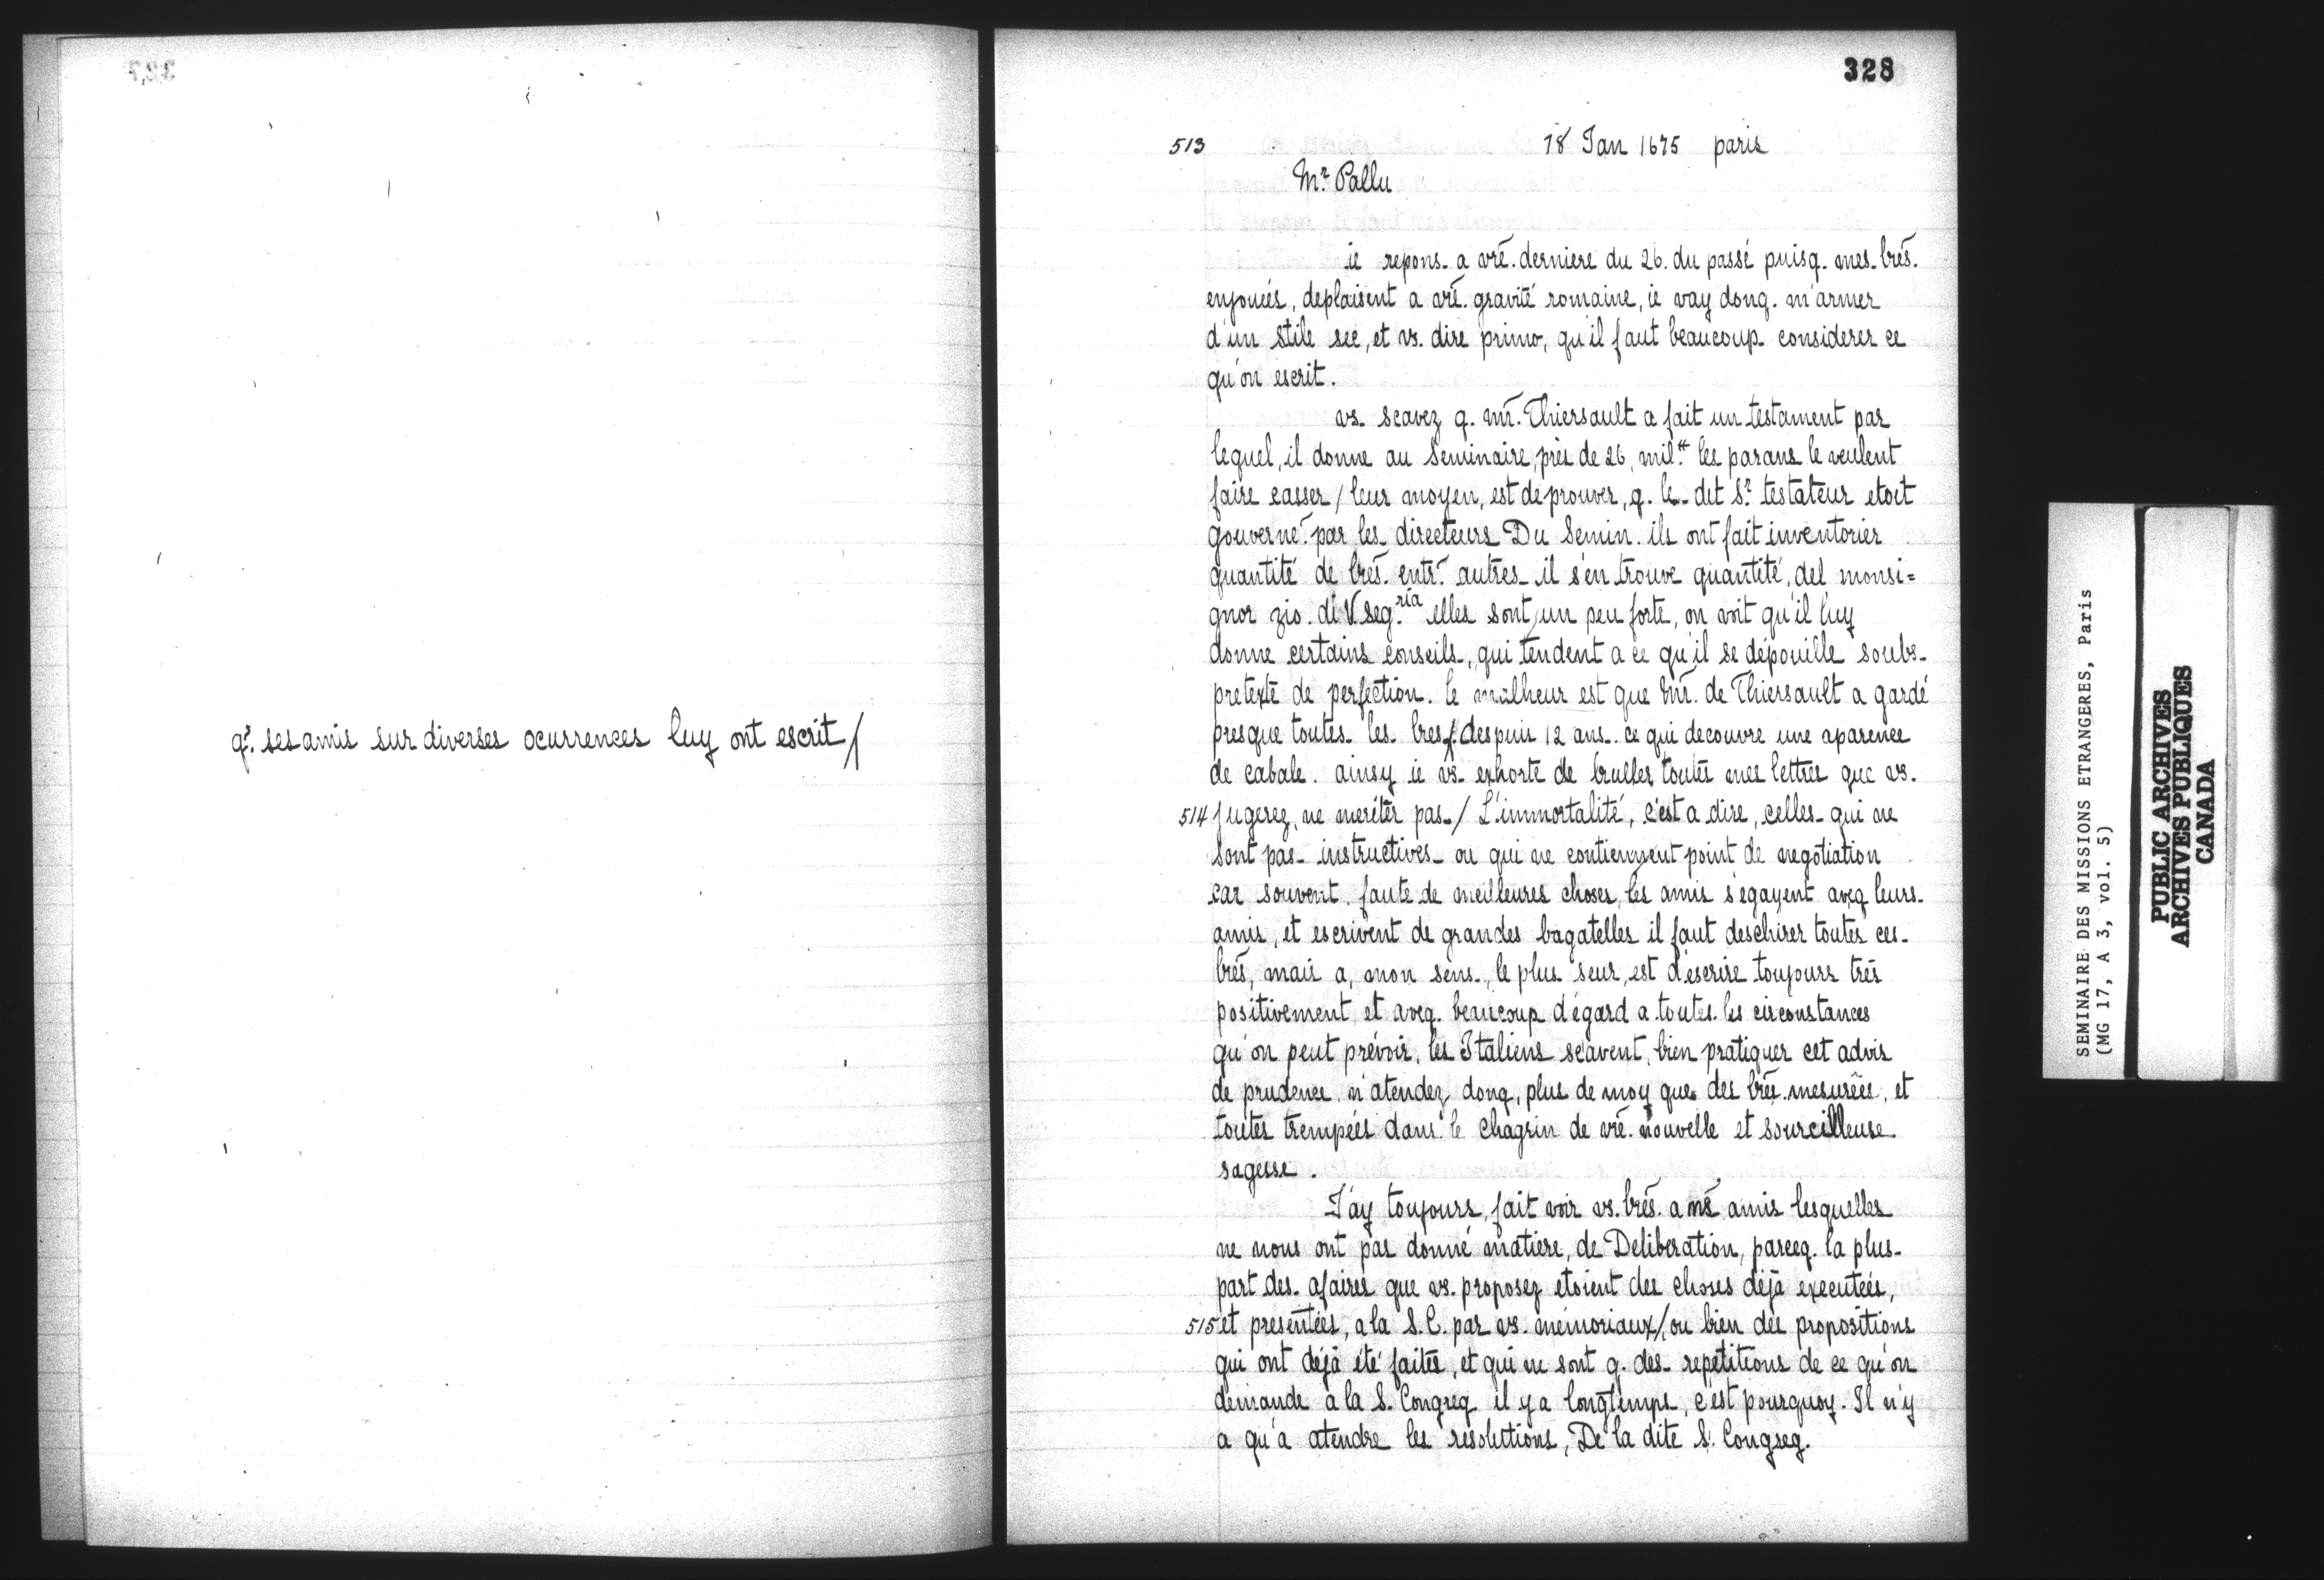 q. ses amis sur diverses ocurrences luy ont escrit /
328
513 18 Jan 1675 paris
Mr. Pallu
ie repons a vre. derniere du 26. du passé puisq. mes. lres.
enjouées, deplaisent a vre. gravité romaine, ie vay donq. m'armer
d'un stile sec, et vs. dire primo, qu'il faut beaucoup considerer ce
qu'on escrit.
vs. scavez q. mr. Thiersault a fait un testament par
lequel, il donne au Seminaire, près de 26, mil.# les parans le veulent
faire casser / leur moyen, est de prouver, q. le dit Sr. testateur etoit
gouverné par les directeurs Du Semin. ils ont fait inventorier
quantité de lres. entr. autres il s'en trouve quantité, del monsi=
gnor zio. di V. Seg.ria elles sont un peu forte, on voit qu'il luy
donne certains conseils, qui tendent a ce qu'il se dépouille soubs
pretexte de perfection. le malheur est que mr. de Thiersault a gardé
presque toutes les lres / despuis 12 ans. ce qui decouvre une aparence
de cabale. ainsy ie vs. exhorte de bruller toutes mes lettres que vs.
514 jugerez, ne meriter pas / L'immortalité, c'est a dire, celles qui ne
sont pas instructives ou qui ne contiennent point de negotiation
car souvent faute de meilleures choses, les amis s'egayent aveq leurs
amis, et escrivent de grandes bagatelles il faut deschirer toutes ces
lres, mais a, mon sens, le plus seur, est d'escrire toujours tres
positivement et aveq. beaucoup d'égard a toutes les circonstances
qu'on peut prévoir, les Italiens scavent, bien pratiquer cet advis
de prudence n'atendez donq, plus de moy que des lres. mesurées, et
toutes trempées dans le chagrin de vre. nouvelle et sourcilleuse
sagesse.
J'ay toujours, fait voir vs. lres. a nos amis lesquelles
ne nous ont pas donné matiere, de Deliberation, parceq. la plus
part des afaires que vs. proposez etoient des choses déjà executées,
515 et presentées, a la S. C. par vs. mémoriaux / ou bien des propositions
qui ont déjà été faites, et qui ne sont q. des repetitions de ce qu'on
demande a la S. Congreg il y a longtemps, c'est pourquoy. Il n'y
a qu'a atendre les resolutions, De la dite S. Congreg.
SEMINAIRE DES MISSIONS ETRANGERES, Paris
(MG 17, A 3, vol. 5)
PUBLIC ARCHIVES
ARCHIVES PUBLIQUES
CANADA